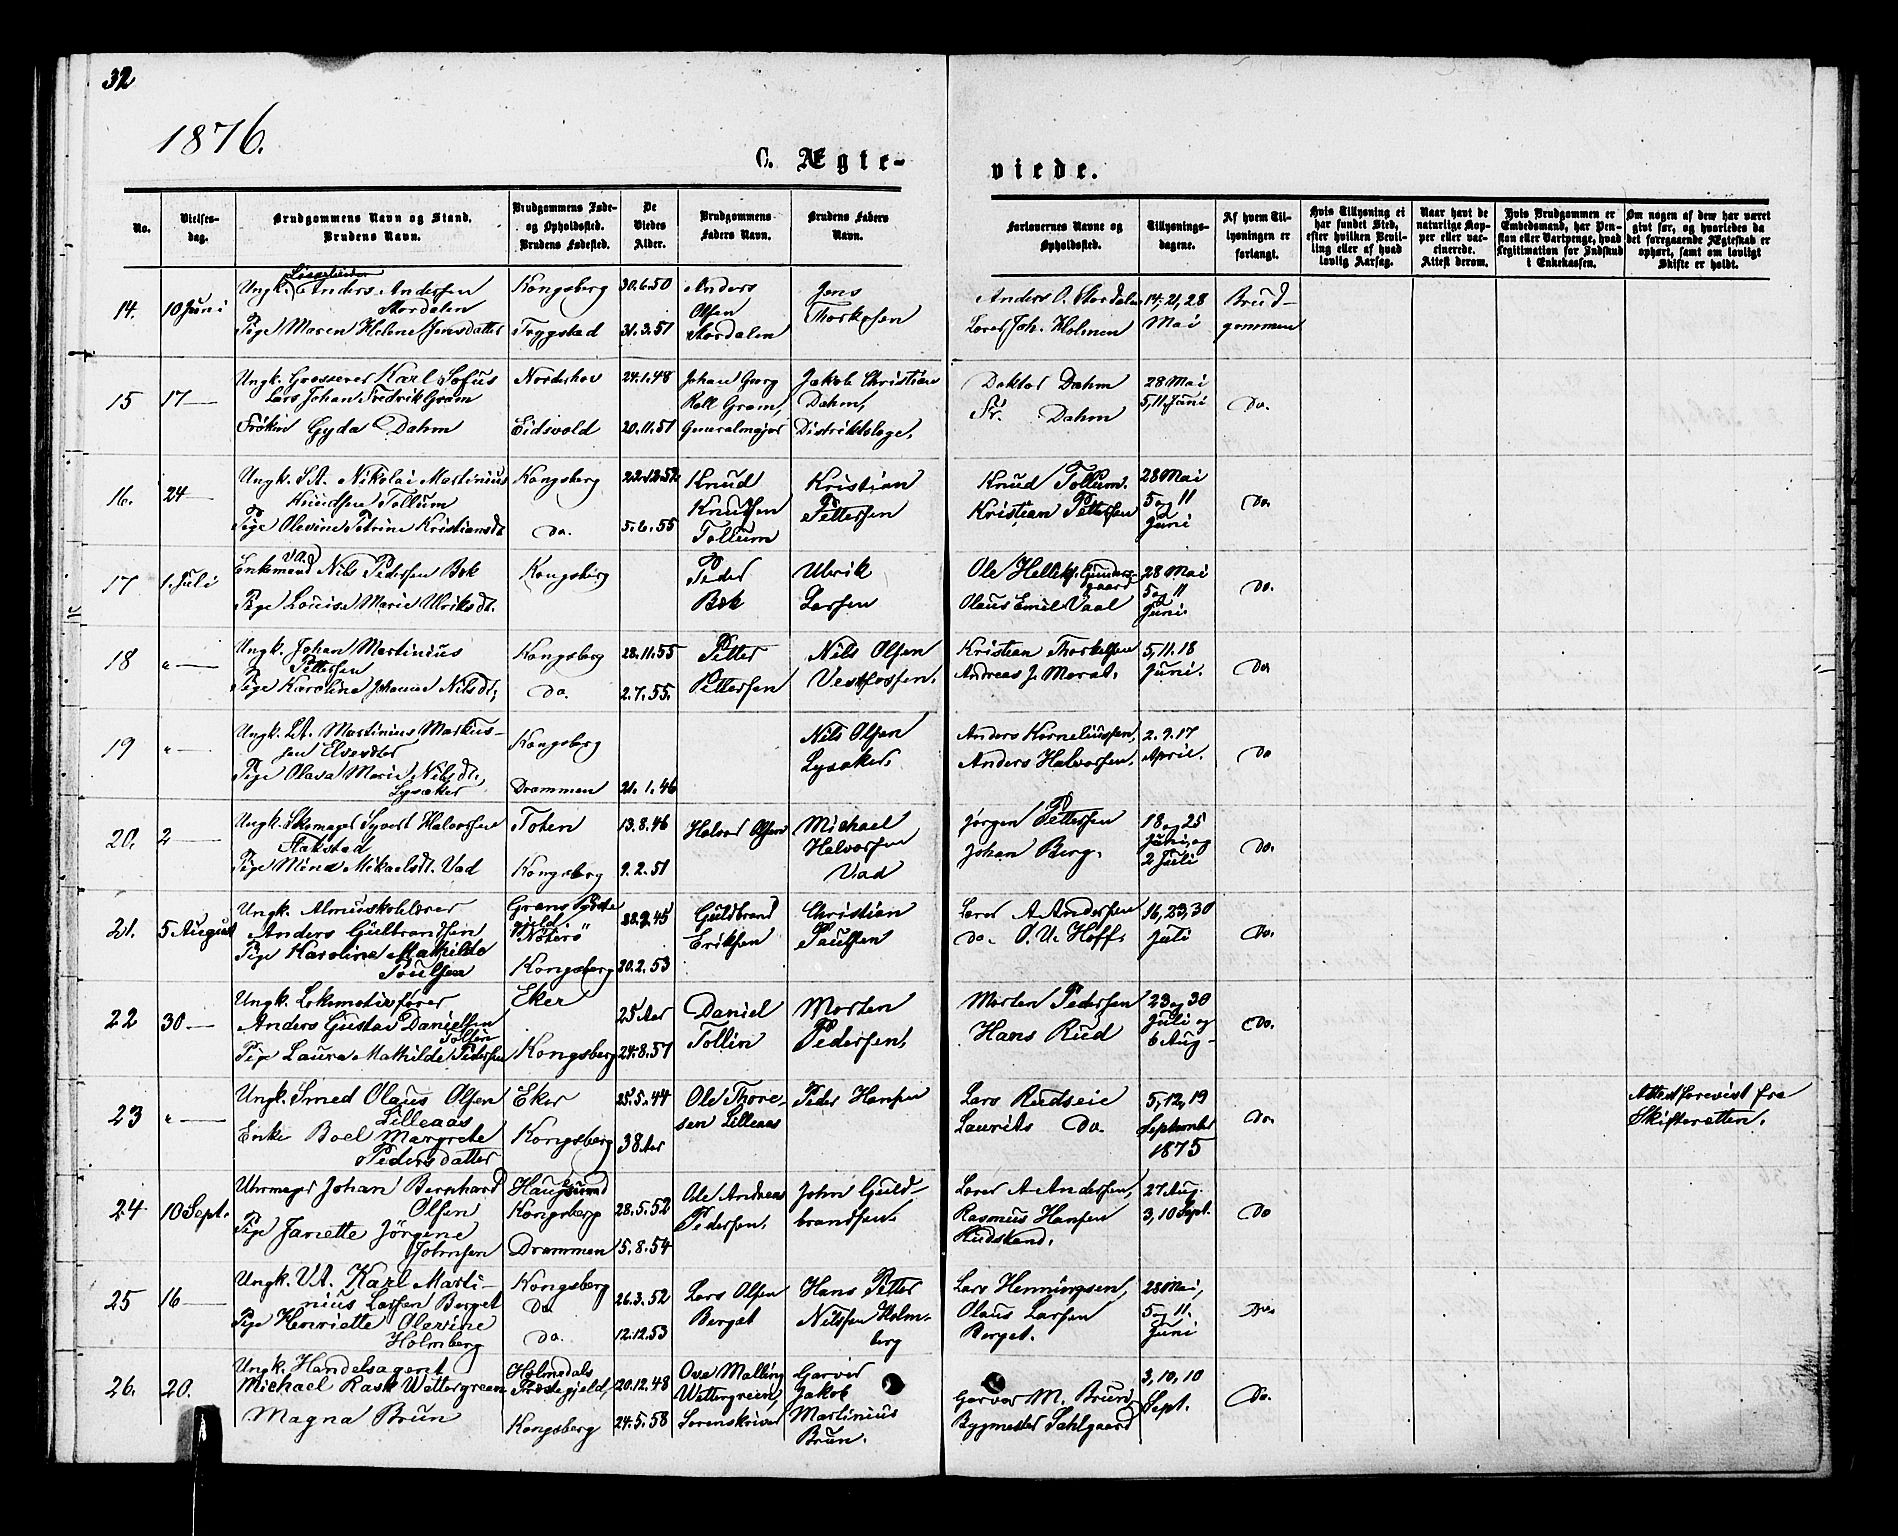 32
1876.
C. Ægte-
viede.
No.
Vielses-
dag.
Brudgommens Navn og Stand.
Brudens Navn.
Brudgommens Føde-
og Opholdssted.
Brudens Fødested.
De
Viedes
Alder.
Brudgommens
Faders Navn.
Brudens Faders
Navn.
Forlovernes Navne og
Opholdssted.
Tillysnings-
dagene.
Af hvem Til-
lysningen er
forlangt.
Hvis Tillysning ei
har fundet Sted,
efter hvilken Bevil-
ling eller af hvad
lovlig Aarsag.
Naar havt de
naturlige Kop-
per eller vac-
cinerede.
Attest derom.
Hvis Brudgommen er
Embedsmand, har Pen-
sion eller Vartpenge, hvad
Legitimation for Indskud
i Enkekassen.
Om nogen af dem har været
givt før, og hvorledes da
det foregaaende Ægteskab er
ophørt, samt om lovligt
Skifte er holdt.
14. 10 Juni
Ungk. Anders Andersen
Stordalen
Pige Maren Helene Jensdatter
Kongsberg
Trygstad
30.6.50
31.3.51
Anders
Olsen
Stordalen
Jens
Thorkosen
Anders O. Stordalen
Lærer Joh. Holmen
14, 21, 28
Mai
Brud-
gommen
15 17
Ungk. Grosserer Karl Sofus
Lars Johan Fredrik Gram
Frøken Gyda Dahm
Norderhov
Eidsvold
24.1.48
20.11.51
Johan Georg
Rall Gram,
Generalmajor
Jakob Christian
Dahm,
Distriktslæge.
Doktor Dahm
Fr. Dahm
28 Mai
5, 11, Juni
Do.
16. 24
Ungk. S.A. Nikolai Martinius
Knudsen Tollum
Pige Olevine Petrine Kristiansdt
Kongsberg
Do.
22.12.52
5.6.55
Knud
Knudsen
Tollum
Kristian
Pettersen
Knud Tollum.
Kristian Pettersen
28 Mai
5 og 11
Juni
Do.
17 1. Juli
Enkemand Nils Pedersen Bek
Pige Lovise Marie Ulriksdt.
Kongsberg
Peder
Bek
Ulerik
Larsen
Ole Helliks.
Olaus Emil Vaal
28 Mai
5 og 11
Juni.
Do.
18 "
Ungk. Johan Martinius
Pettersen
Pige Karoline Johanne Nilsdt,
Kongsberg
Do.
28.11.55
2.7.55.
Petter
Pettersen
Nils Olsen
Vestfossen.
Kristian Thorkelsen
Andreas J. Morat.
5, 11. 18
Juni.
Do.
19 "
Ungk. Martinius Markus-
sen
Pige Olava Marie Nilsdt,
Lysaker
Kongsberg
Drammen
21.1.46
Nils Olsen
Lysaker.
Anders Korneliussen,
Anders Halvorsen.
2. 9. 17
April.
Do
20. 2
Ungk. Skomager Syvert Halvorsen
Stakstad
Pige Mina Mikaelsdt. Vad
Toten
Kongsberg
13.8.46
9.2.51
Halvor Olsen
Michael
Halvorsen
Vad
Jørgen Pettersen
Johan Berg.
18 og 25
Juni, og
2 Juli
Do.
21. 5 August
Ungk. Almueskolelærer
Anders Gulbrandsen
Pige Karoline Mathilde
Poulsen
Grans Præste
gield
Kongsberg
20.2.53
Guldbrand
Eriksen
Christian
Paulsen
Lærer A Andersen
do. O. U. Hoff.
16, 23, 30
Juli
Do.
22 30
Ungk. Lokomotivfører
Anders Gustav Danielsen
Tollin
Pige Laura Mathilde Pedersen
Eker
Kongsberg
25 Aar
24.8.51
Daniel
Tollin
Morten
Pedersen,
Morten Pedersen
Hans Rud
23 og 30
Juli og
6 Aug
Do.
23 "
Ungk. Smed Olaus Olsen
Lilleaas
Enke Boel Margrete
Pedersdatter
Eker
Kongsberg
25.5.44
38 Aar
Ole Thore-
sen Lilleaas
Peder Hansen
Lars Rudseie
Laurits Do.
5, 12, 19
September
1875
Do.
Attest forevist fra
Skifteretten.
24 10 Sept.
Uhrmager Johan Bernhard
Olsen
Pige Janette Jørgine
Johnsen
Haugsund
Kongsberg
Drammen
28.5.52
15.8.54
Ole Andreas
Pedersen,
John Guld-
brandsen.
Lærer A Andersen,
Rasmus Hansen
Rudskend.
27 Aug.
3, 10 Sept.
Do
25 16
Ungk. Karl Marti-
nius Larsen Berget
Pige Henriette Olevine
Holmberg
Kongsberg
Do.
Do.
26.3.52
12.12.53
Lars Olsen
Berget
Hans Petter
Nilssen Holm-
berg
Lars Henningsen,
Olaus Larsen
Berget.
28 Mai,
5 og 11.
Juni
Do.
26. 20.
Ungk. Handelsagent
Michael Rask Wettergreen
Magna Brun
Holmedals
Præstegjeld,
Kongsberg
20.12.48
24.5.58
Ove Malling
Wettergreen,
Sorenskriver
Garver
Jakob
Martinius
Brun.
Garver M. Brun,
Bygmester Sahlgaard
3, 10, 10
Sept.
Do.